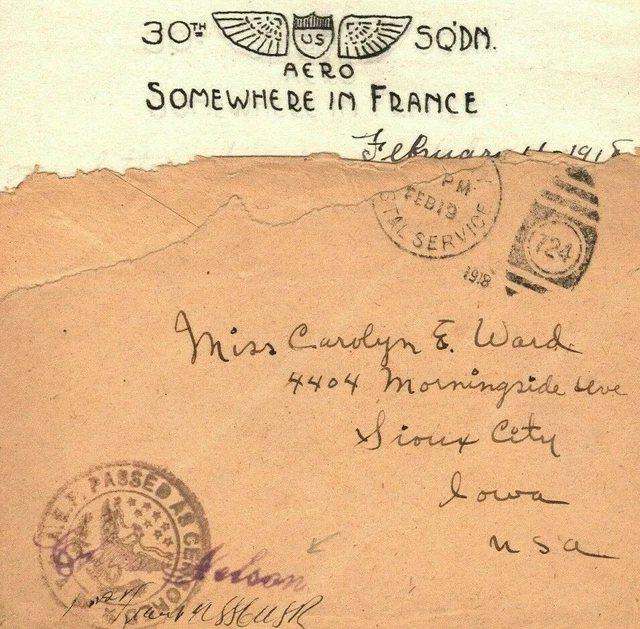 30TH US SQ'DN.
AERO
SOMEWHERE IN FRANCE
February 11 1918
PM
FEB 19
STAL SERVICE
1918
724
Miss Carolyn E. Ward
4404 Morningside Ave
Sioux City
Iowa
USA
A.E.F. PASSED AS CENSORED
Nelson